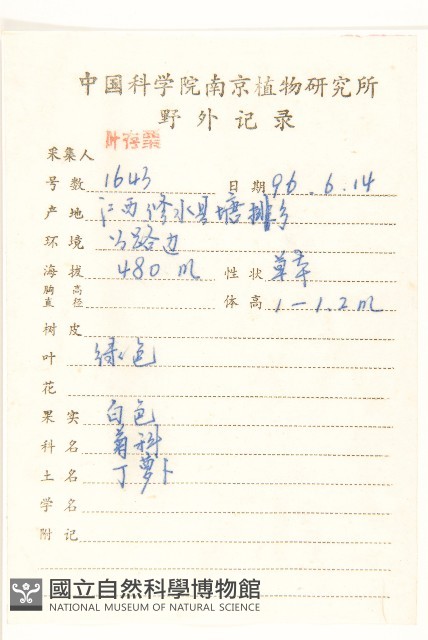 中国科学院南京植物研究所
野外记录
采集人 叶存粟
号数 1643 日期 96.6.14
产地 江西修水县塘排乡
环境 公路边
海拔 480 m 性状 草本
胸高直径 体高 1-1.2m
树皮
叶 绿色
花
果实 白色
科名 菊科
土名 丁萝卜
学名
附记
國立自然科學博物館
NATIONAL MUSEUM OF NATURAL SCIENCE